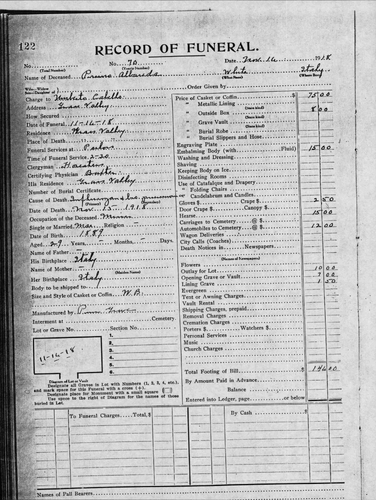 122
RECORD OF FUNERAL.
No. 70 Date Nov. 16 1918
(Total Number) (Yearly Number)
Name of Deceased Primo White Italy
(What Race) (Where Born)
Charge to Order Given by
Address Grass Valley
How Secured
Date of Funeral 11-16-18
Residence Grass Valley
Place of Death
Funeral Services at Parlor
Time of Funeral Service 2-20
Clergyman
Certifying Physician
His Residence Grass Valley
Number of Burial Certificate
Cause of Death Influenza & pneumonia
Date of Death Nov. 15 - 1918
Occupation of the Deceased Miner
Single or Married Mar. Religion
Date of Birth 1889
Aged 29 Years, Months, Days.
Name of Father
His Birthplace Italy
Name of Mother
(Maiden Name)
Her Birthplace Italy
Body to be shipped to
Size and Style of Casket or Coffin W.B.
Manufactured by
Interment at Cemetery
Lot or Grave No. Section No.
11-16-18
1.
2.
3.
4.
5.
6.
Diagram of Lot or Vault
Designate all Graves in Lot with Numbers (1, 2, 3, 4, etc.), and mark space for this Funeral with a cross (+).
Designate place for Monument with a small square
Use space to the right of Diagram for the names of those buried in Lot.
Price of Casket or Coffin 75 00
" Metallic Lining
(State kind)
" Outside Box 8 00
(State kind)
" Grave Vault
(State kind)
" Burial Robe
" Burial Slippers and Hose
Engraving Plate
Embalming Body (with Fluid) 15 00
Washing and Dressing
Shaving
Keeping Body on Ice
Disinfecting Rooms
Use of Catafalque and Drapery
" Folding Chairs
" Candelabrum and Candles
Gloves $ Crape $ 2 50
Door Crape $ Canopy $
Hearse 15 00
Carriages to Cemetery (@ $
Automobiles to Cemetery (@ $ 12 00
Wagon Deliveries
City Calls (Coaches)
Death Notices in Newspapers
Flowers
Outlay for Lot 10 00
Opening Grave or Vault 7 00
Lining Grave 1 50
Evergreen
Tent or Awning Charges
Vault Rental
Shipping Charges, prepaid
Removal Charges
Cremation Charges
Porters $ Watchers $
Personal Services
Music
Church Charges
Total Footing of Bill 146 00
By Amount Paid in Advance
Balance
Entered into Ledger, page or below
To Funeral Charges Total, $
By Cash $
Names of Pall Bearers